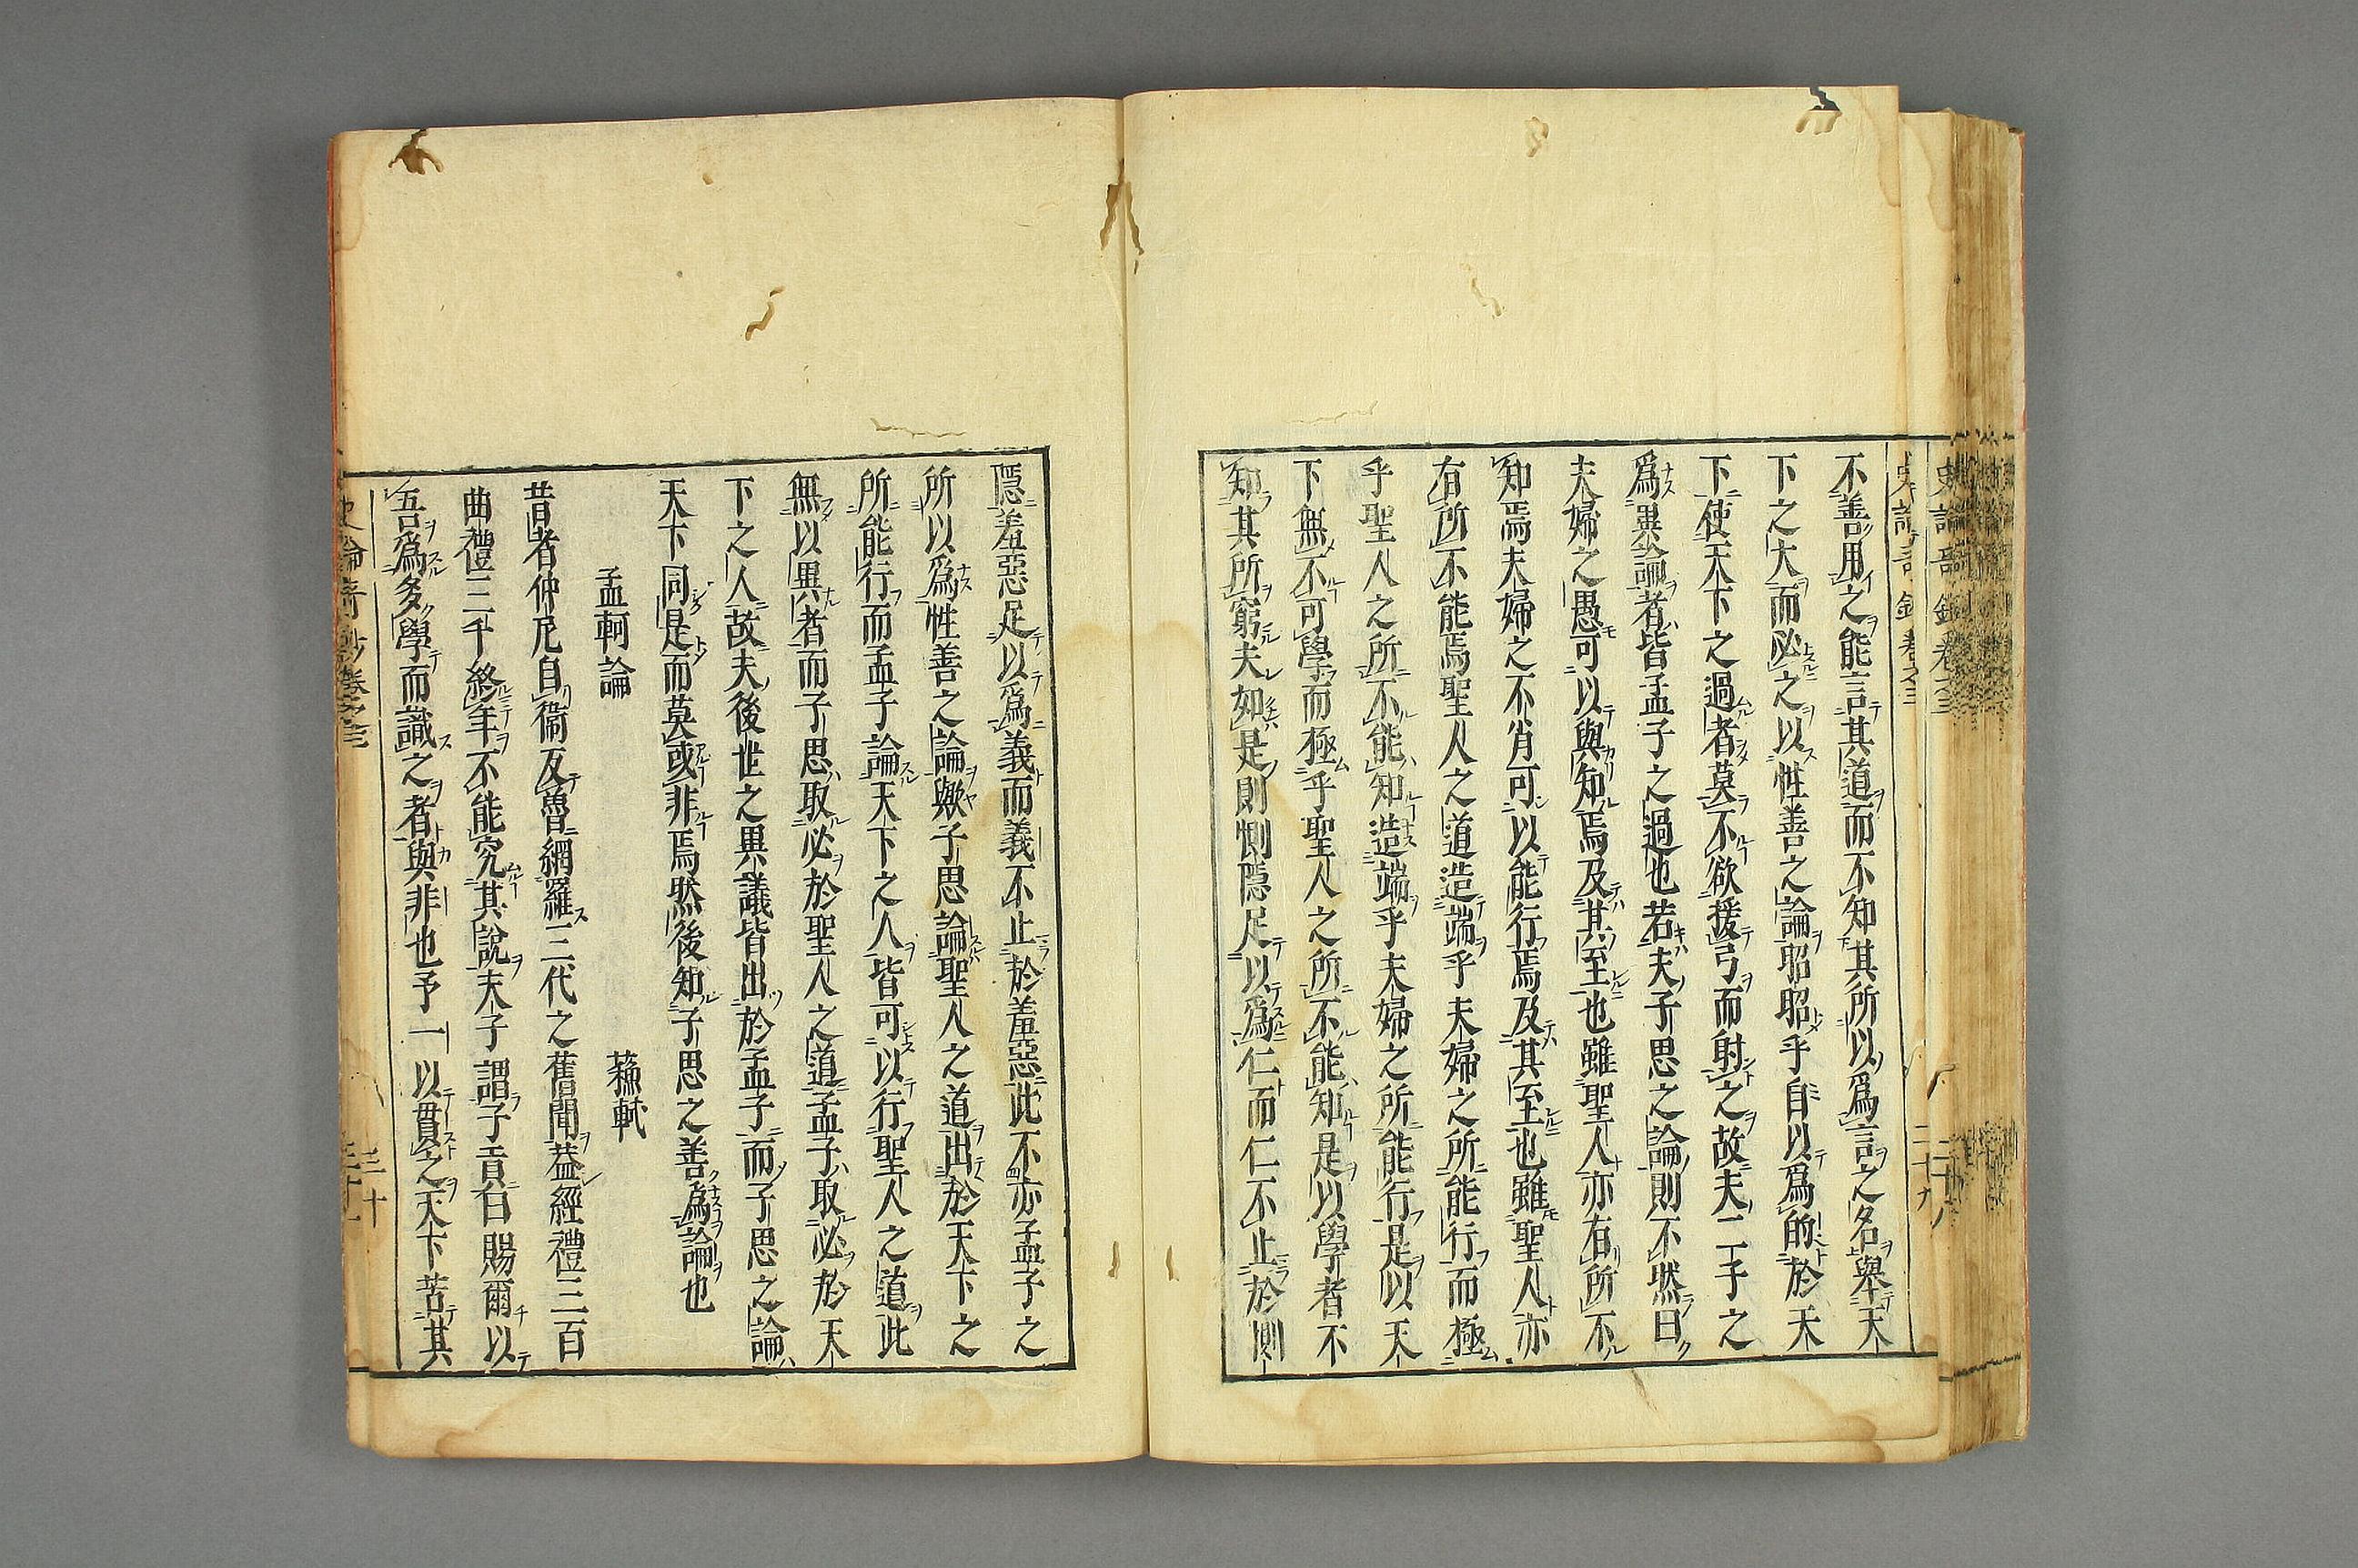 不善用之能言其道而不知其所以爲言之名舉天
下之大而必之以性善之論昭昭乎自以爲的於天
下使天下之過者莫不欲援弓而射之故夫二子之
爲異論者皆孟子之過也若夫子思之論則不然曰
夫婦之愚可以與知焉及其至也雖聖人亦有所不
知焉夫婦之不肖可以能行焉及其至也雖聖人亦
有所不能焉聖人之道造端乎夫婦之所能行而極
乎聖人之所不能知造端乎夫婦之所能行是以天
下無不可學而極乎聖人之所不能知是以學者不
知其所窮夫如是則惻隱足以爲仁而仁不止於惻
隱羞惡足以爲義而義不止於羞惡此不亦孟子之
所以爲性善之論歟子思論聖人之道出於天下之
所能行而孟子論天下之人皆可以行聖人之道此
無以異者而子思取必於聖人之道孟子取必於天
下之人故夫後世之異議皆出於孟子而子思之論
天下同是而莫或非焉然後知子思之善爲論也
孟軻論 蘇軾
昔者仲尼自衞反魯網羅三代之舊聞蓋經禮三百
曲禮三千終年不能究其說夫子謂子貢曰賜爾以
吾爲多學而識之者與非也予一以貫之天下苦其
三十